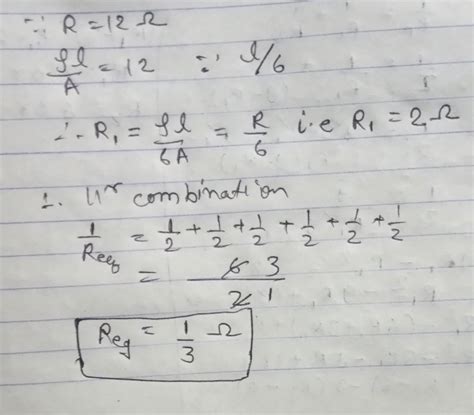 ∵ R = 12 Ω
ρl/A = 12 ∵ l/6
∴ R₁ = ρl/6A = R/6 i.e R₁ = 2Ω
∴ 11ʳ combination
1/Req = 1/2 + 1/2 + 1/2 + 1/2 + 1/2 + 1/2
= 6 3 / 2 1
Req = 1/3 Ω